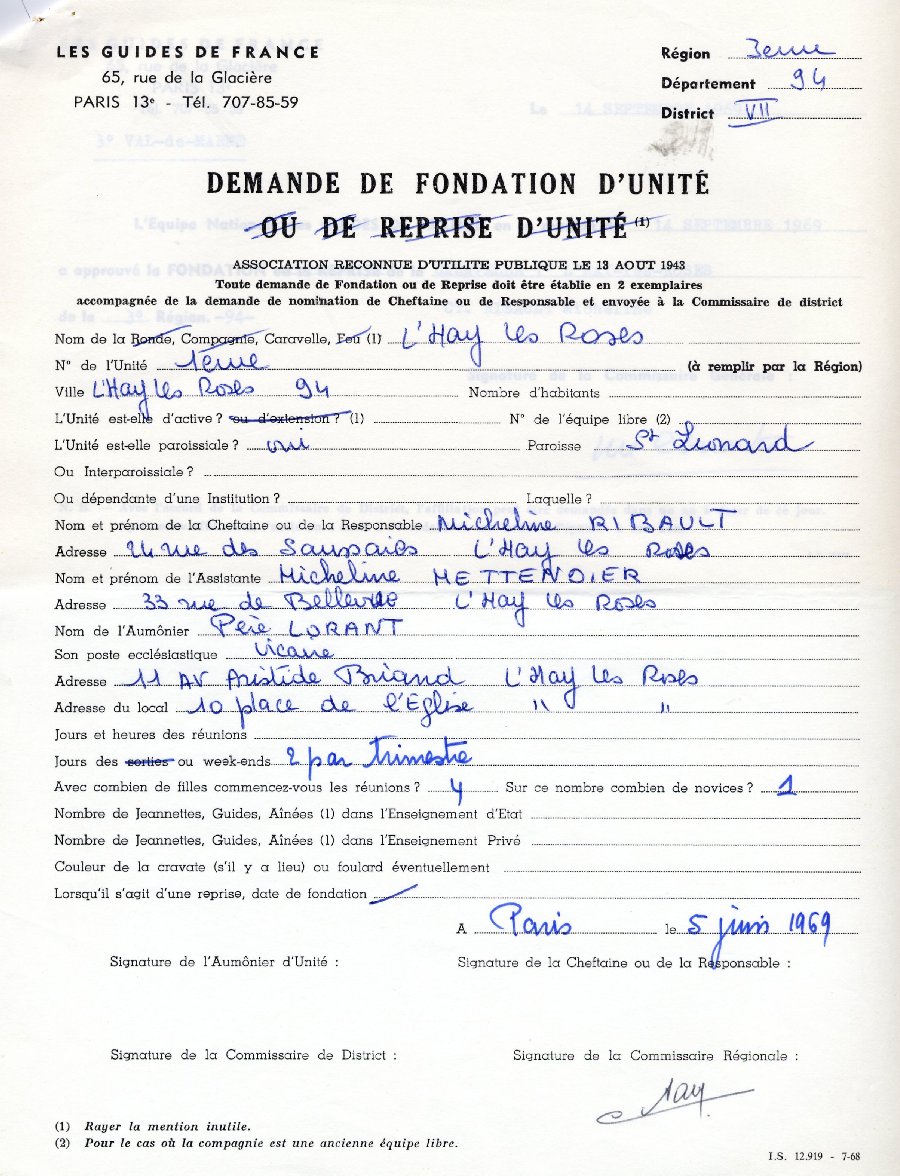 LES GUIDES DE FRANCE
65, rue de la Glacière
PARIS 13e - Tél. 707-85-59
Région 3eme
Département 94
District VII
DEMANDE DE FONDATION D'UNITÉ
OU DE REPRISE D'UNITÉ (1)
ASSOCIATION RECONNUE D'UTILITE PUBLIQUE LE 13 AOUT 1943
Toute demande de Fondation ou de Reprise doit être établie en 2 exemplaires
accompagnée de la demande de nomination de Cheftaine ou de Responsable et envoyée à la Commissaire de district
Nom de la Ronde, Compagnie, Caravelle, Feu (1) L'Hay les Roses
N° de l'Unité 1eme (à remplir par la Région)
Ville L'Hay les Roses 94 Nombre d'habitants
L'Unité est-elle d'active ? ou d'extension ? (1) N° de l'équipe libre (2)
L'Unité est-elle paroissiale ? oui Paroisse St Léonard
Ou Interparoissiale ?
Ou dépendante d'une Institution ? Laquelle ?
Nom et prénom de la Cheftaine ou de la Responsable Micheline RIBAULT
Adresse 24 rue des Saussaies L'Hay les Roses
Nom et prénom de l'Assistante Micheline METTENDIER
Adresse 33 rue de Bellevue L'Hay les Roses
Nom de l'Aumônier Père LORANT
Son poste ecclésiastique Vicaire
Adresse 11 AV Aristide Briand L'Hay les Roses
Adresse du local 10 place de l'Eglise " "
Jours et heures des réunions
Jours des sorties ou week-ends 2 par trimestre
Avec combien de filles commencez-vous les réunions ? 4 Sur ce nombre combien de novices ? 1
Nombre de Jeannettes, Guides, Aînées (1) dans l'Enseignement d'Etat
Nombre de Jeannettes, Guides, Aînées (1) dans l'Enseignement Privé
Couleur de la cravate (s'il y a lieu) ou foulard éventuellement
Lorsqu'il s'agit d'une reprise, date de fondation
A Paris le 5 juin 1969
Signature de l'Aumônier d'Unité : Signature de la Cheftaine ou de la Responsable :
Signature de la Commissaire de District : Signature de la Commissaire Régionale :
(1) Rayer la mention inutile.
(2) Pour le cas où la compagnie est une ancienne équipe libre.
I.S. 12.919 - 7-68